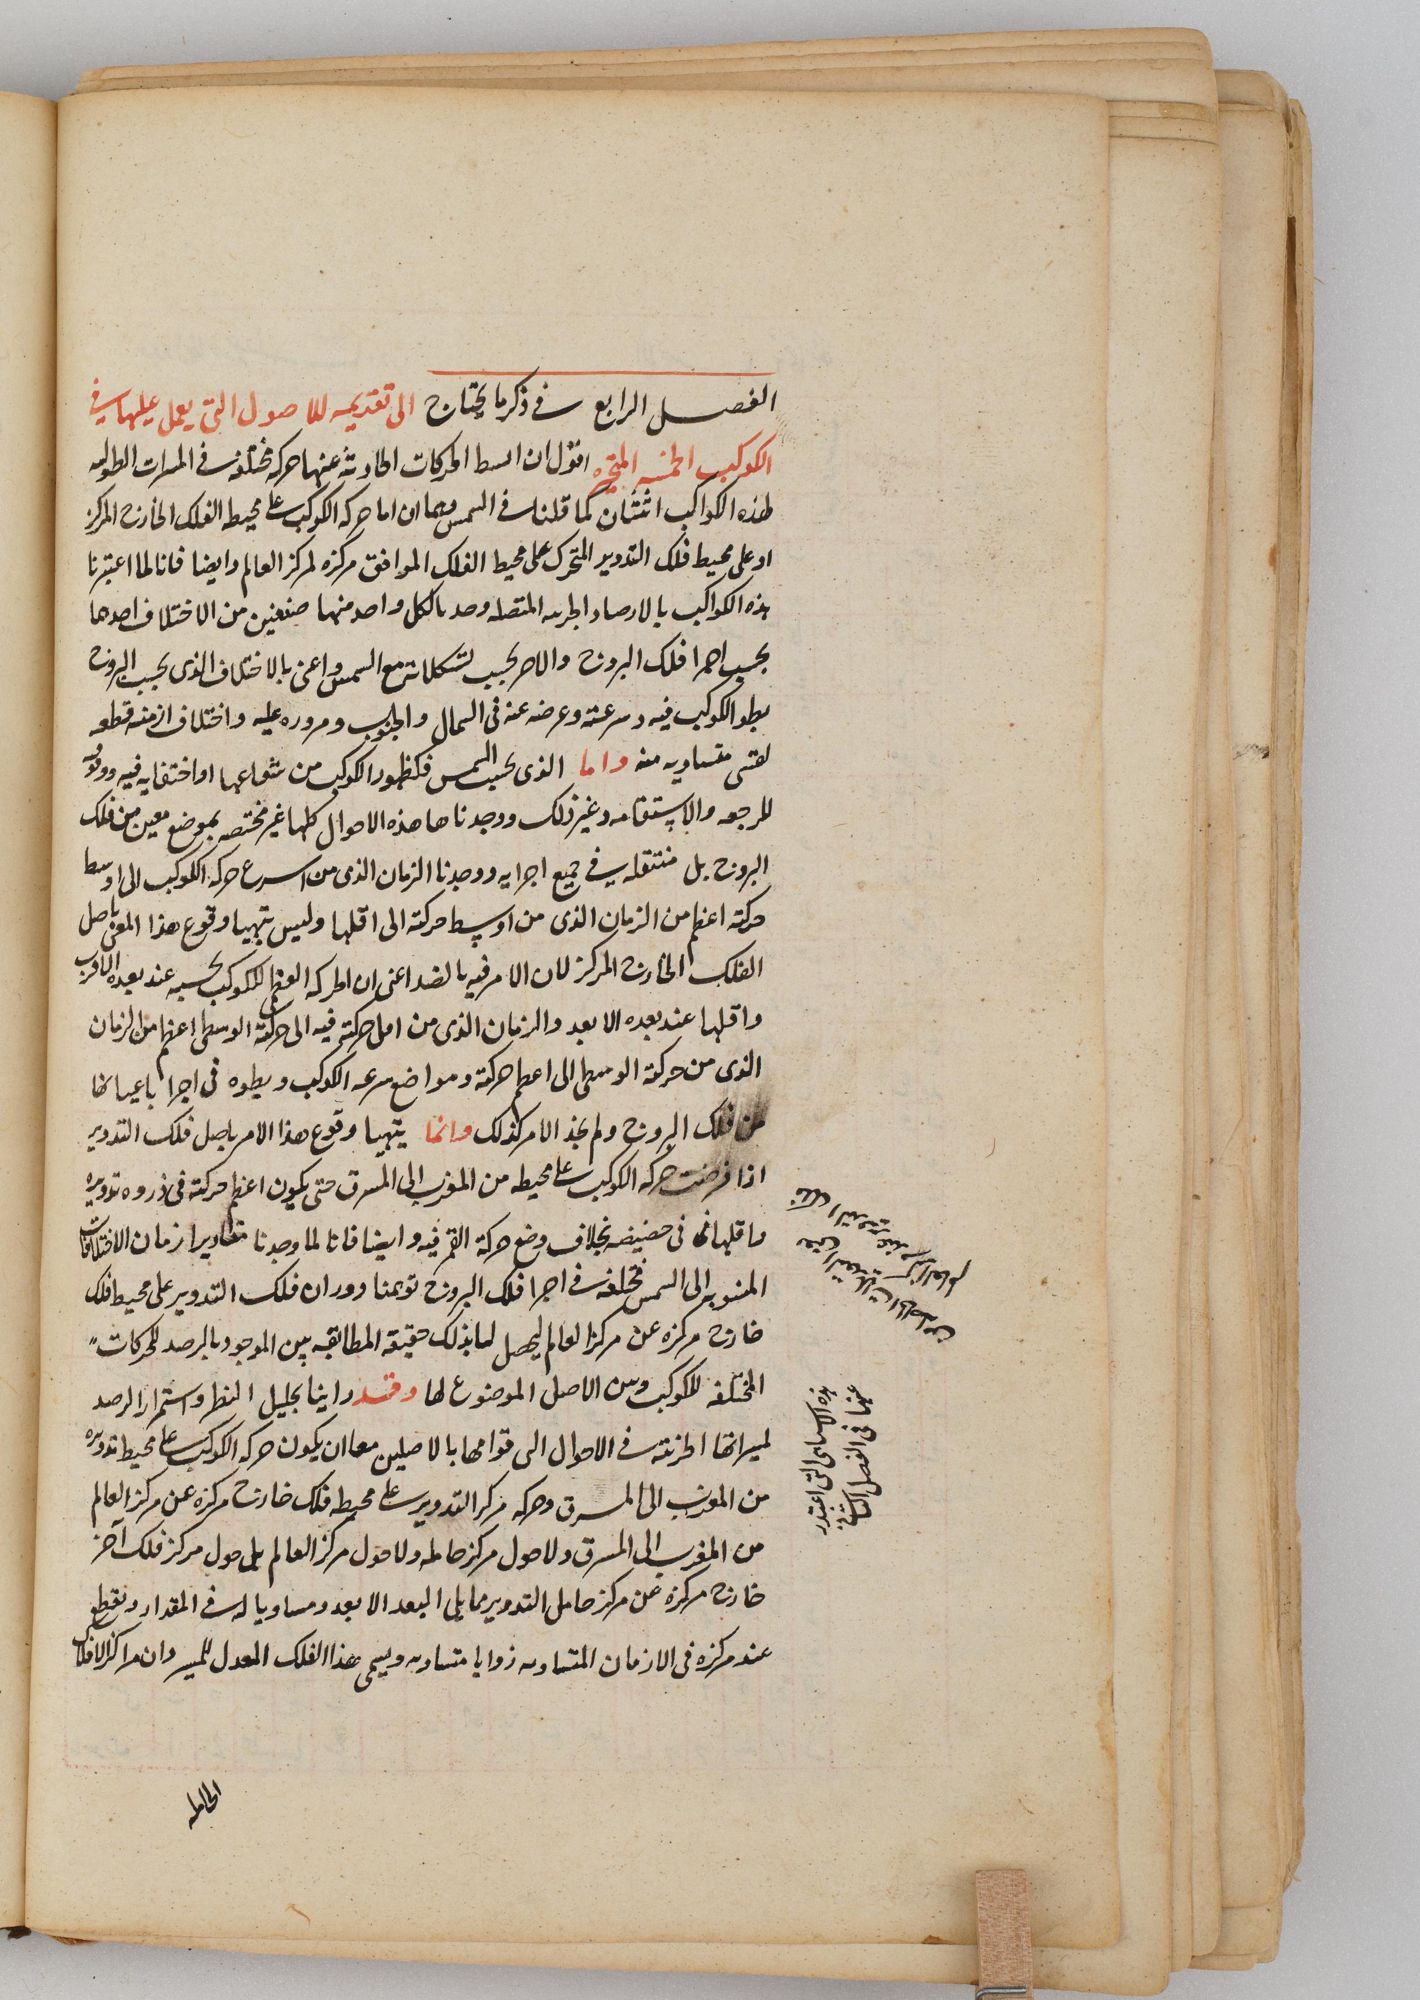 الفصل الرابع في ذكر ما يحتاج الى تقديمه للاصول التي يعمل عليها في
الكوكب الخمسه المتحيره اقول ان ابسط الحركات الحادثه عنها حركه مختلفه في المرات الطوليه
لهذه الكواكب اثنتان كما قلنا في الشمس وهما ان اما حركه الكوكب على محيط الفلك الخارج المركز
او على محيط فلك التدوير المتحرك على محيط الفلك الموافق مركزه لمركز العالم وايضا فانا لما اعتبرنا
هذه الكواكب بالارصاد الجزييه المتصله وجدنا لكل واحد منها صنفين من الاختلاف احدهما
بحسب اجزا فلك البروج والاخر بحسب تشكلاته مع الشمس واعنى بالاختلاف الذى بحسب البروج
بطو الكوكب فيه وسرعته وعرضه عنه فى الشمال والجنوب ومروره عليه واختلاف ازمنه قطعه
لقسى متساويه منه واما الذى بحسب الشمس فكظهور الكوكب من شعاعها او اختفايه فيه ووقوفه
للرجعه والاستقامه وغير ذلك ووجدنا هذه الاحوال كلها غير مختصه بموضع معين من فلك
البروج بل منتقله في جميع اجزايه ووجدنا الزمان الذى من اسرع حركه الكوكب الى اوسط
حركته اعظم من الزمان الذى من اوسط حركته الى اقلها وليس يتهيا وقوع هذا المعنى باصل
الفلك الخارج المركز لان الامر فيه بالضد اعنى ان الحركه العظمى للكوكب بحسبه عند بعده الاقرب
واقلها عند بعده الابعد والزمان الذى من اقل حركته فيه الى حركته الوسطى اعظم من الزمان
الذى من حركته الوسطى الى اعظم حركته ومواضع سرعه الكوكب وبطوه فى اجزا باعيانها
من فلك البروج ولم نجد الامر كذلك وانما يتهيا وقوع هذا الامر باصل فلك التدوير
اذا فرضت حركه الكوكب على محيطه من المغرب الى المشرق حتى يكون اعظم حركته فى ذروه تدويره
واقلها فى حضيضه بخلاف وضع حركة القمر فيه وايضا فانا لما وجدنا مقادير ازمان الاختلافات
المنسوبه الى الشمس مختلفه في اجزا فلك البروج توهمنا دوران فلك التدوير على محيط فلك
خارج مركزه عن مركز العالم ليحصل لنا بذلك حقيقة المطابقه بين الموجود بالرصد للحركات
المختلفه للكوكب وبين الاصل الموضوع لها وقد راينا بجليل النظر واستمرار الرصد
لمسيراتها الجزئيه في الاحوال التى قوامها بالاصلين معا ان يكون حركه الكوكب على محيط تدويره
من المغرب الى المشرق وحركه مركز التدوير على محيط فلك خارج مركزه عن مركز العالم
من المغرب الى المشرق ولا حول مركز حامله ولا حول مركز العالم بل حول مركز فلك آخر
خارج مركزه عن مركز حامل التدوير مما يلى البعد الابعد ومساويا له في المقدار ويقطع
عند مركزه فى الازمان المتساويه زوايا متساويه ويسمى هذا الفلك المعدل للمسير وان مراكز الافلاك
الحامله
هذه الاسامى التى اعتذر
عنها فى الفصل الثانى